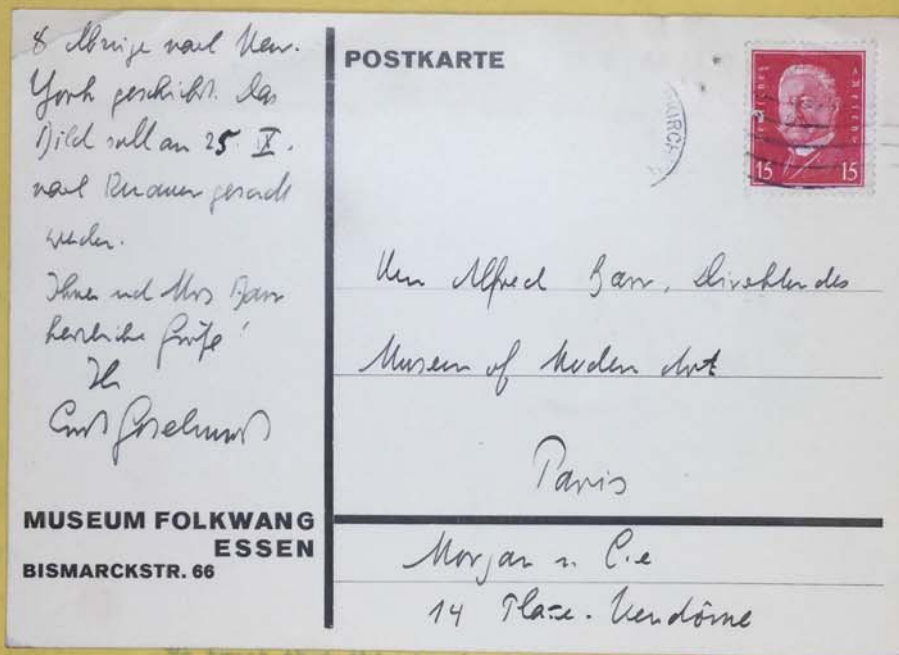 8 Abzüge nach New-
York geschickt. Das
Bild soll am 25. IX.
nach gesandt
werden.
Ihnen und Mrs Barr
herzliche Grüße!
Ihr
MUSEUM FOLKWANG
ESSEN
BISMARCKSTR. 66
POSTKARTE
15 15
Herrn Alfred Barr, Direktor des
Museum of Modern Art
Paris
Morgan u. Cie
14 Place-Vendôme